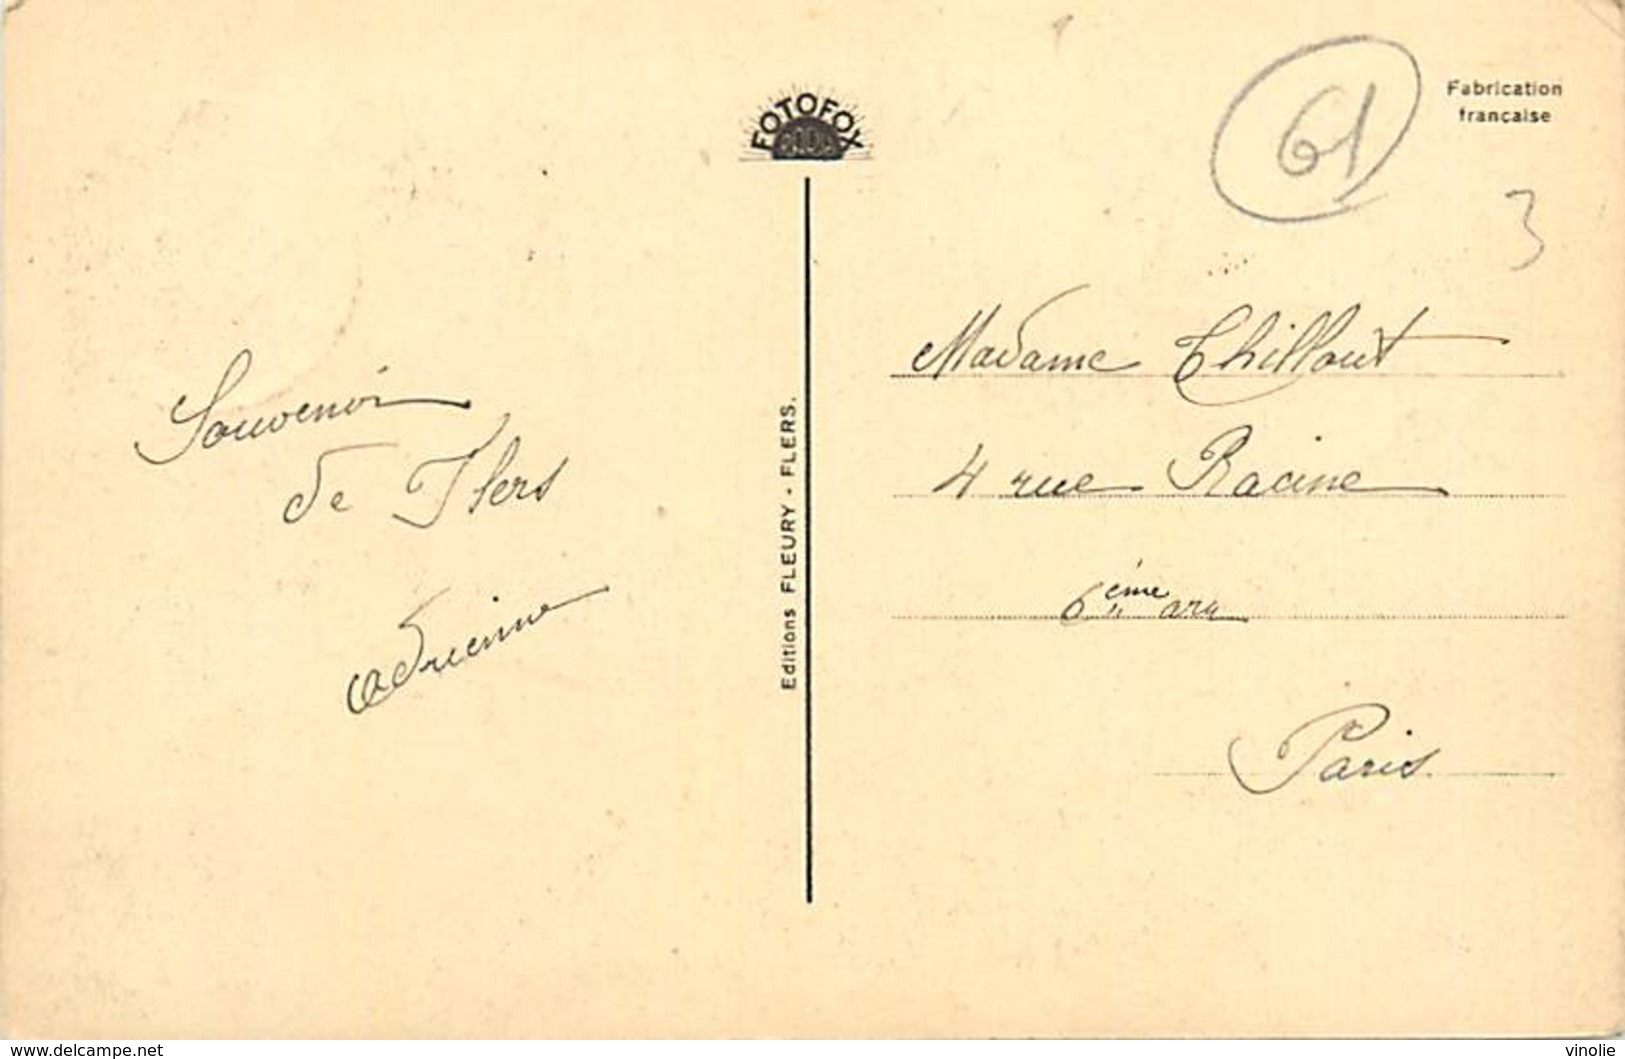 FOTOFOX
61
Fabrication
française
3
Souvenir
de Flers
Adrienne
Editions FLEURY - FLERS.
Madame Thillout
4 rue Racine
6ème arr
Paris
www.delcampe.net
vinolie